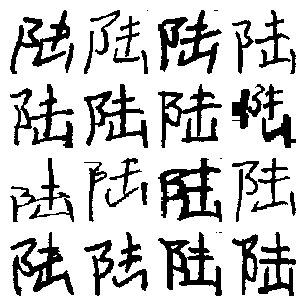 陆陆陆陆
陆陆陆陆
陆陆陆陆
陆陆陆陆